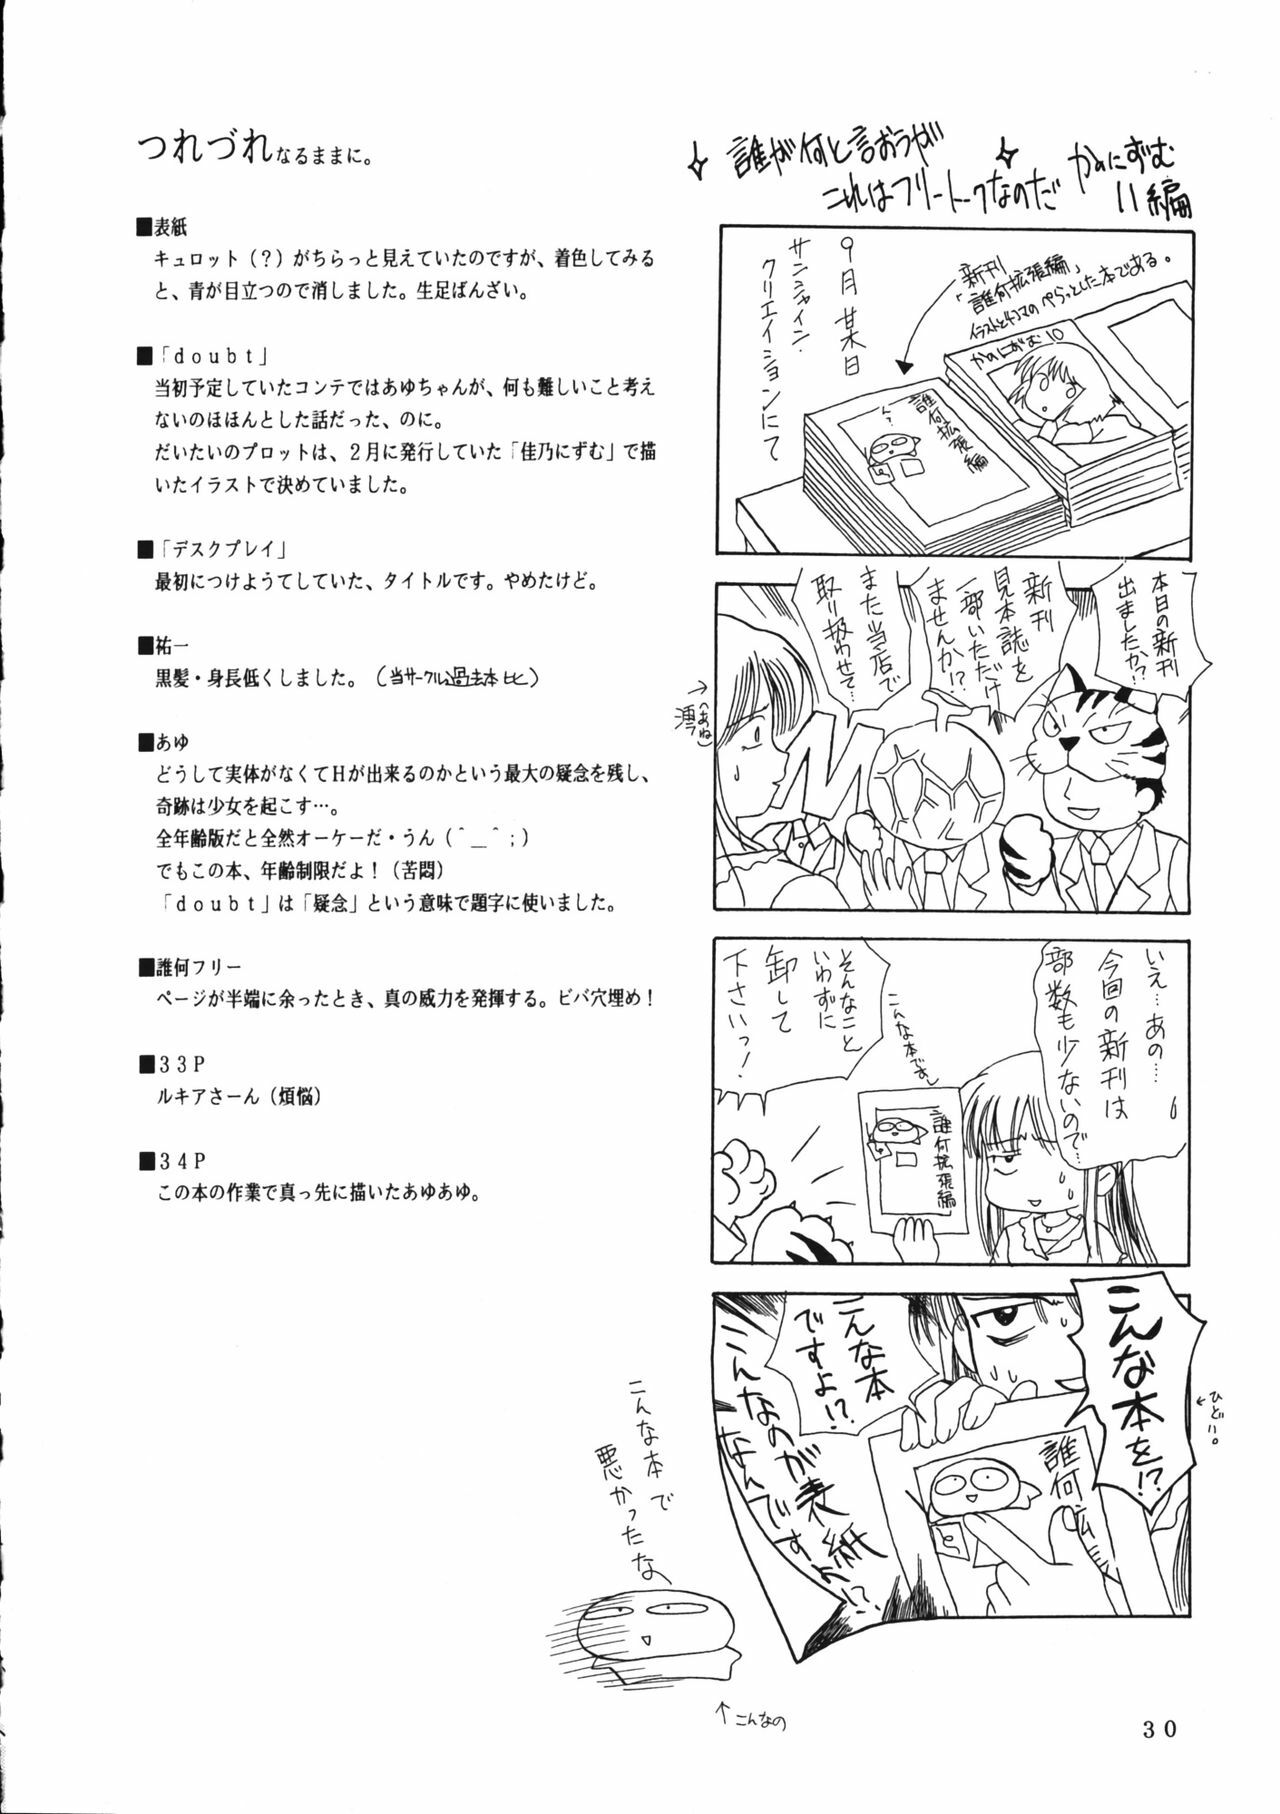 つれづれなるままに。
■表紙
キュロット（？）がちらっと見えていたのですが、着色してみる
と、青が目立つので消しました。生足ばんざい。
■「doubt」
当初予定していたコンテではあゆちゃんが、何も難しいこと考え
ないのほほんとした話だった、のに。
だいたいのプロットは、２月に発行していた「佳乃にずむ」で描
いたイラストで決めていました。
■「デスクプレイ」
最初につけようてしていた、タイトルです。やめたけど。
■祐一
黒髪・身長低くしました。（当サークル過去本比）
■あゆ
どうして実体がなくてＨが出来るのかという最大の疑念を残し、
奇跡は少女を起こす…。
全年齢版だと全然オーケーだ・うん（＾＿＾；）
でもこの本、年齢制限だよ！（苦悶）
「doubt」は「疑念」という意味で題字に使いました。
■誰何フリー
ページが半端に余ったとき、真の威力を発揮する。ビバ穴埋め！
■３３Ｐ
ルキアさーん（煩悩）
■３４Ｐ
この本の作業で真っ先に描いたあゆあゆ。
誰が何と言おうが
これはフリートークなのだ
かのにずむ
11編
９月某日
サンシャイン・
クリエイションにて
新刊
「誰何拡張編」
イラストと4コマのぺらっとした本である。
かのにずむ10
誰何拡張編
ん?
本日の新刊
出ましたか!?
新刊
見本誌を
一部いただけ
ませんか!?
また当店で
取り扱わせて…
M
→澪
(あね)
いえ…あの…
今回の新刊は
部数も少ないので…
こんな本ですし
誰何拡張編
そんなこと
いわずに
卸して
下さいっ！
こんな本を!?
←ひどい。
こんな本
ですよ!?
こんなのが表紙
なんですよ!?
誰何拡張
こんな本で
悪かったな
↑こんなの
30